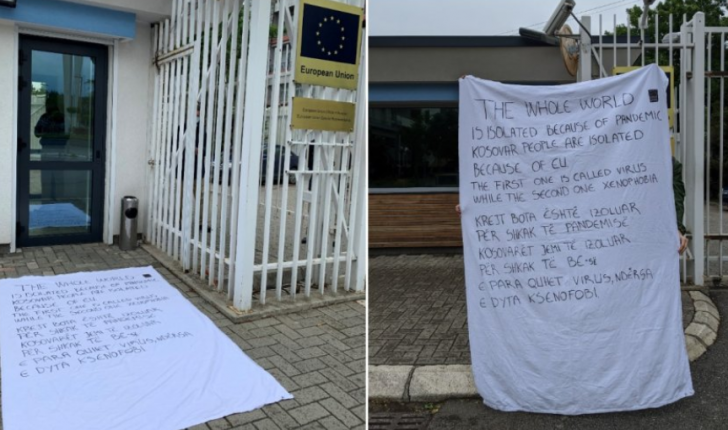 European Union
THE WHOLE WORLD
IS ISOLATED BECAUSE OF PANDEMIC
KOSOVAR PEOPLE ARE ISOLATED
BECAUSE OF EU
THE FIRST ONE IS CALLED VIRUS
WHILE THE SECOND ONE XENOPHOBIA
KREJT BOTA ËSHTË IZOLUAR
PËR SHKAK TË PANDEMISË
KOSOVARËT JEMI TË IZOLUAR
PËR SHKAK TË BE-së
E PARA QUHET VIRUS, NDËRSA
E DYTA KSENOFOBI
THE WHOLE WORLD
IS ISOLATED BECAUSE OF PANDEMIC
KOSOVAR PEOPLE ARE ISOLATED
BECAUSE OF EU
THE FIRST ONE IS CALLED VIRUS
WHILE THE SECOND ONE XENOPHOBIA
KREJT BOTA ËSHTË IZOLUAR
PËR SHKAK TË PANDEMISË
KOSOVARËT JEMI TË IZOLUAR
PËR SHKAK TË BE-së
E PARA QUHET VIRUS, NDËRSA
E DYTA KSENOFOBI